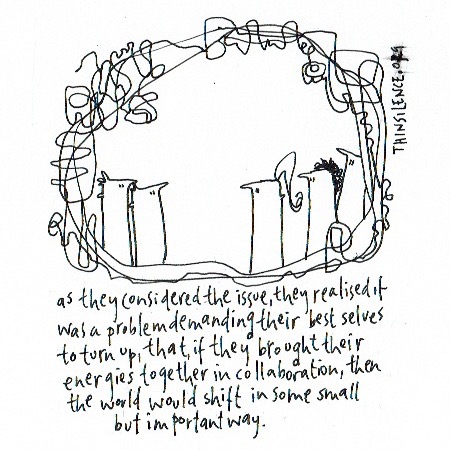 THINSILENCE.org
as they considered the issue, they realised it
was a problem demanding their best selves
to turn up, that, if they brought their
energies together in collaboration, then
the world would shift in some small
but important way.